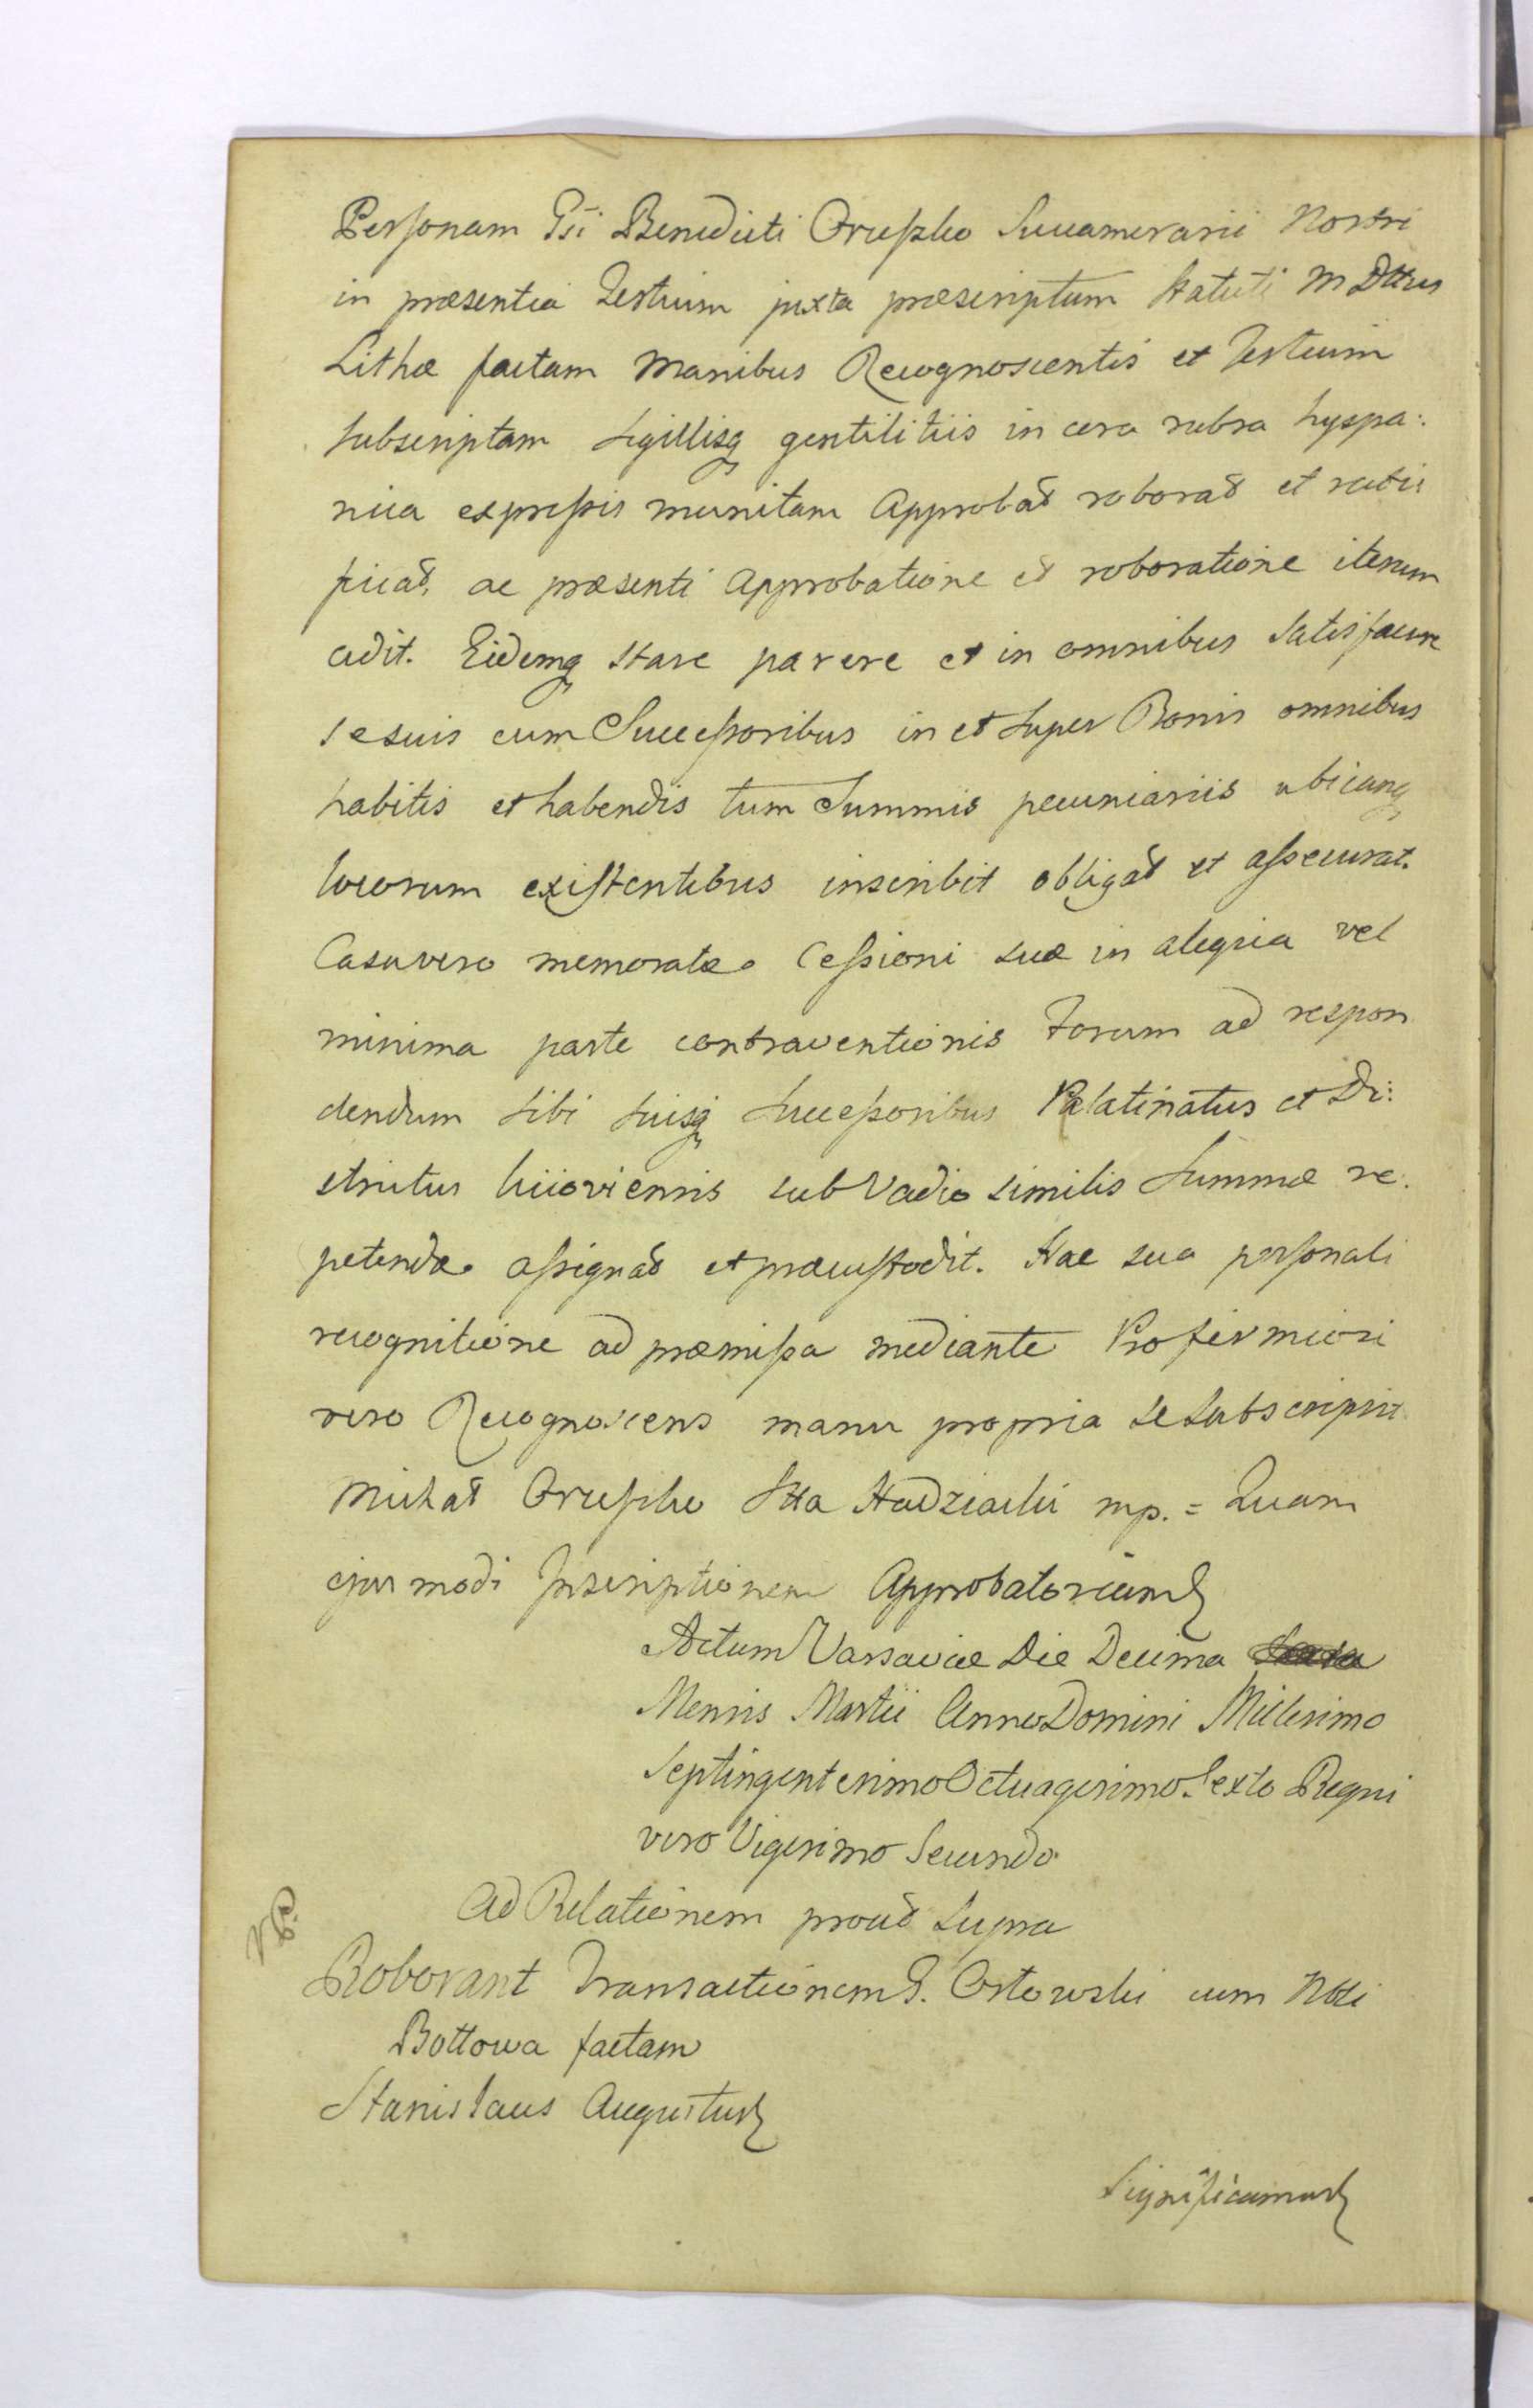 Personam Gsi Benedicti Oreszko Succamerarii Nostri
in præsentia Testium juxta præscriptum Statuti M Dttus
Lithæ factam Manibus Recognoscentis et Testium
Subscriptam Sigillisq gentilitiis in cera rubra hyspa:
nica expressis munitam Approbat roborat et rati:
ficat, ac præsenti Approbatione et roboratione iterum
cedit. Eidemq stare parere et in omnibus Satisfacere
se suis cum Successoribus in et Super Bonis omnibus
habitis et habendis tum Summis pecuniariis ubicunq
locorum existentibus inscribit obligat et assecurat.
Casu vero memoratæ Cessioni suæ in aleqria vel
minima parte contraventionis Forum ad respon
dendum Sibi Suisq Successoribus Palatinatus et Di:
strictus kiioviensis sub Vadio similis Summæ re:
petendæ assignat et præcustodit. Hac sua personali
recognitione ad præmissa mediante Pro firmiori
vero Recognoscens manu propria se Subscripsit
Michał Oreszko Stta Hadziacki mp. = Quam
ejusmodi Inscriptionem Approbatoriam
Actum Varsaviæ Die Decima
Mensis Martii Anno Domini Millesimo
Septingentesimo Octuagesimo Sexto Regni
vero Vigesimo Secundo
Ad Relationem prout Supra
Roborant Transactionem G. Ostowski cum Nbli
Bottowa factam
Stanislaus Augustus
Significamus